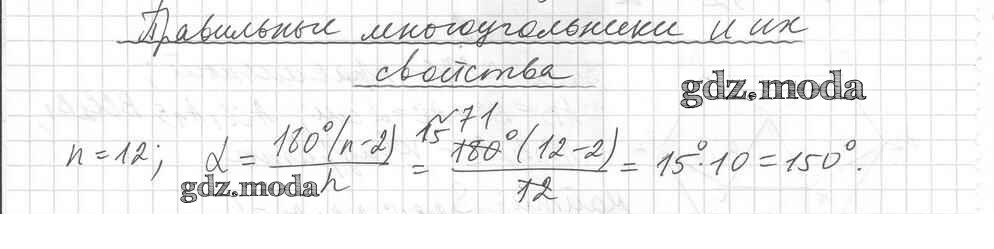 Правильные многоугольники и их
свойства
gdz.moda
n = 12; α = 180°(n-2)/n = 180°(12-2)/12 = 15°·10 = 150°.
15
gdz.moda